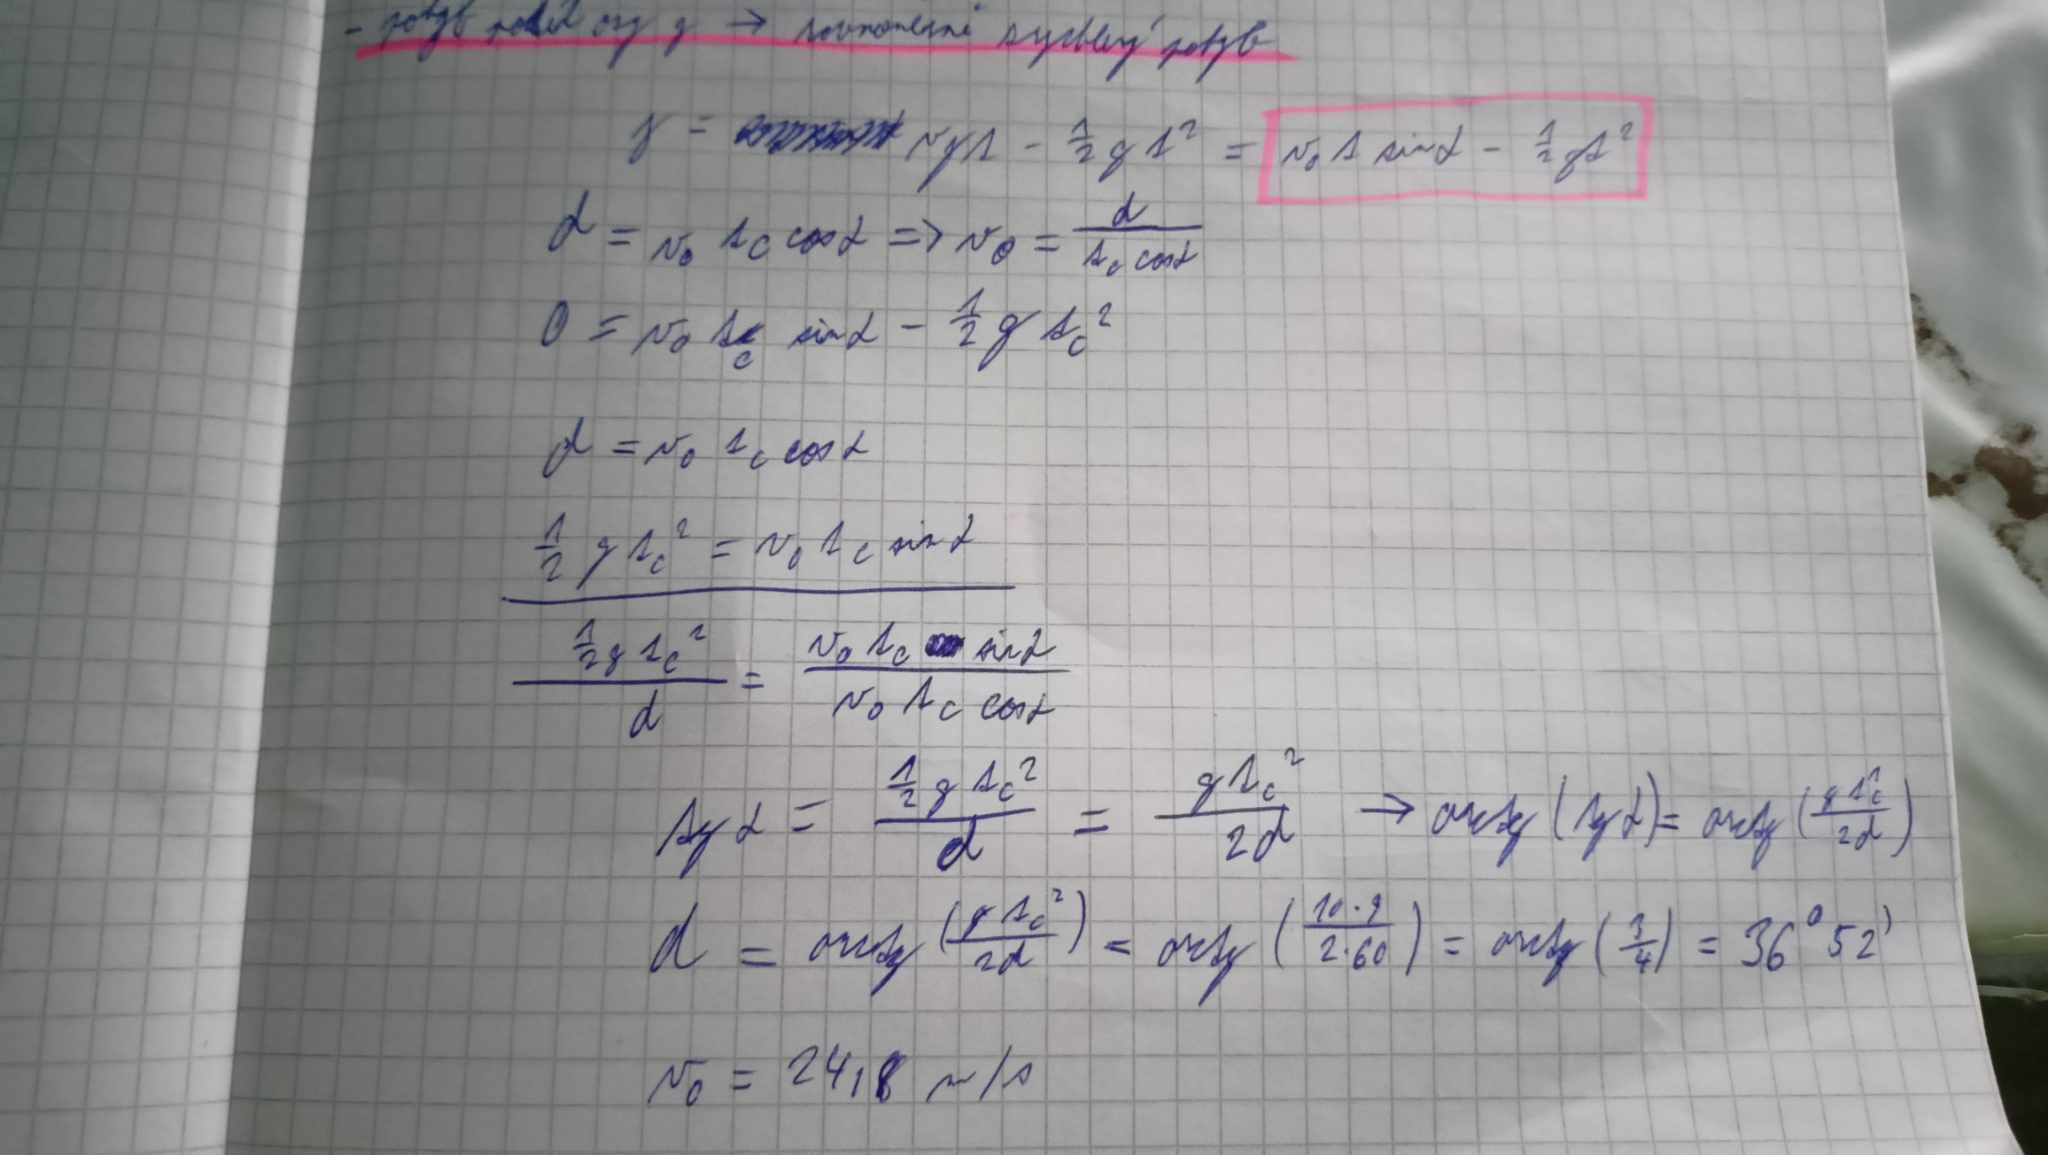 - pohyb podél osy y → rovnoměrně zrychlený pohyb
y = vyt - 1/2 gt² = v₀ t sinα - 1/2 gt²
d = v₀ t_c cosα => v₀ = d/(t_c cosα)
0 = v₀ t_c sinα - 1/2 g t_c²
d = v₀ t_c cosα
1/2 g t_c² = v₀ t_c sinα
(1/2 g t_c²)/d = (v₀ t_c sinα)/(v₀ t_c cosα)
tgα = (1/2 g t_c²)/d = (g t_c²)/(2d) → arctg (tgα) = arctg ((g t_c²)/(2d))
α = arctg ((g t_c²)/(2d)) = arctg ((10·9)/(2·60)) = arctg (3/4) = 36° 52'
v₀ = 24,8 m/s